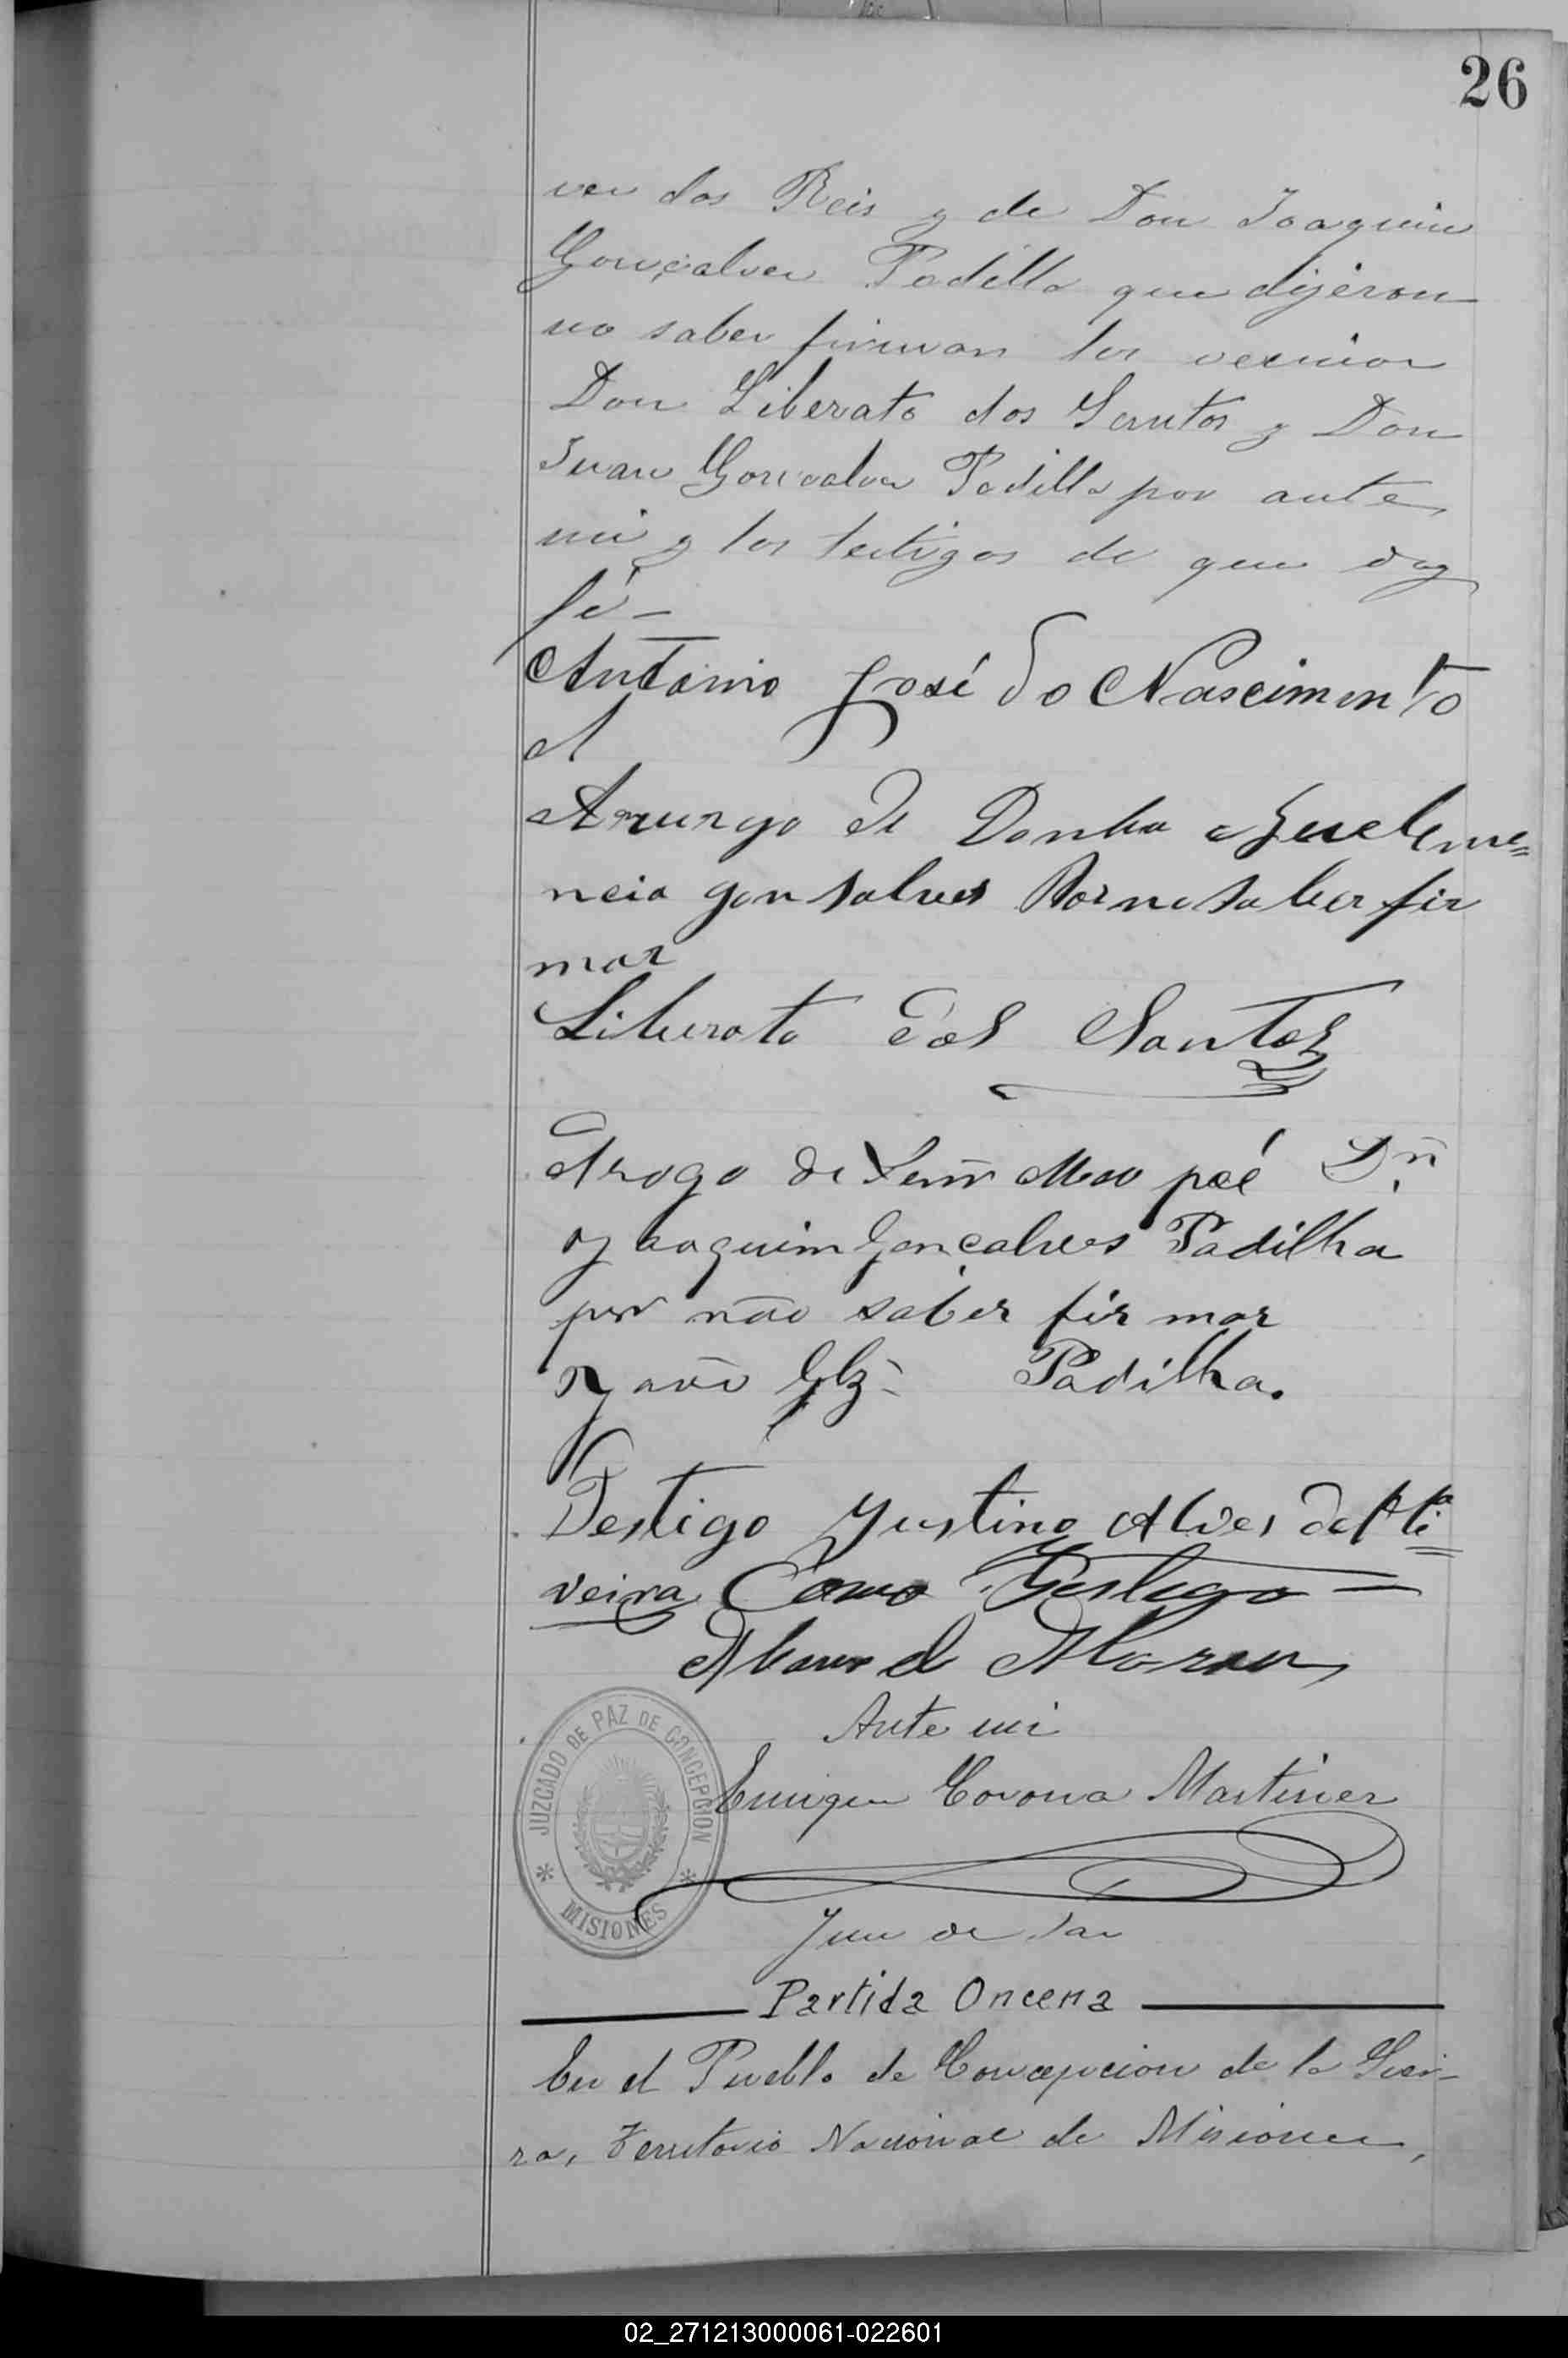 26
ver dos Reis y de Don Joaquin
Gonçalves Padilla que dijeron
no saber firman los vecinos
Don Liberato dos Santos y Don
Juan Goncalves Padilla por ante
mi y los testigos de que doy
fé —
Antonio José do Nascimento
A
Arrungo de Donha
ncia gonsalves Por no saber fir
mar
Liberato dos Santos
Arogo de Senr Meo paé Dn
Joaquim Gonçalves Padilha
por não saber fir mar
João Glz Padilha.
Testigo Justino Alves de Oli
veira Como Testigo =
Manuel Moran
Ante mi
JUZGADO DE PAZ DE CONCEPCION
* MISIONES *
Enrique Corona Martinez
Juez de Paz
Partida Oncena
En el Pueblo de Concepcion de la Sier-
ra, Territorio Nacional de Misiones,
02_271213000061-022601